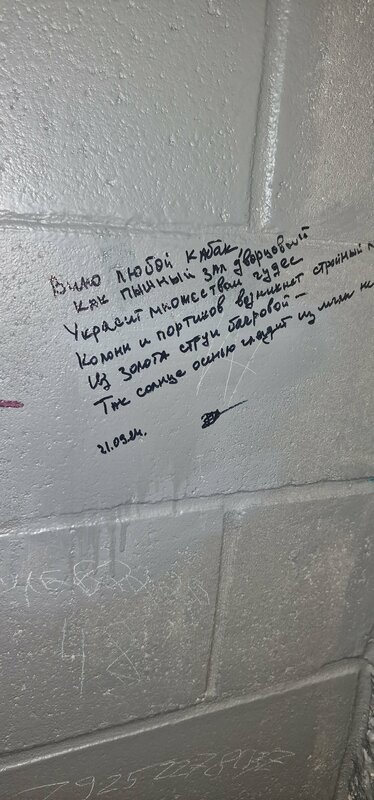 Вино любой кабак,
как пышный зал дворцовый
Украсит множеством чудес
Колонн и портиков возникнет стройный
Из золота струи багровой –
Так солнце осенью глядит из мглы
21.09.24.
48
7925 2278